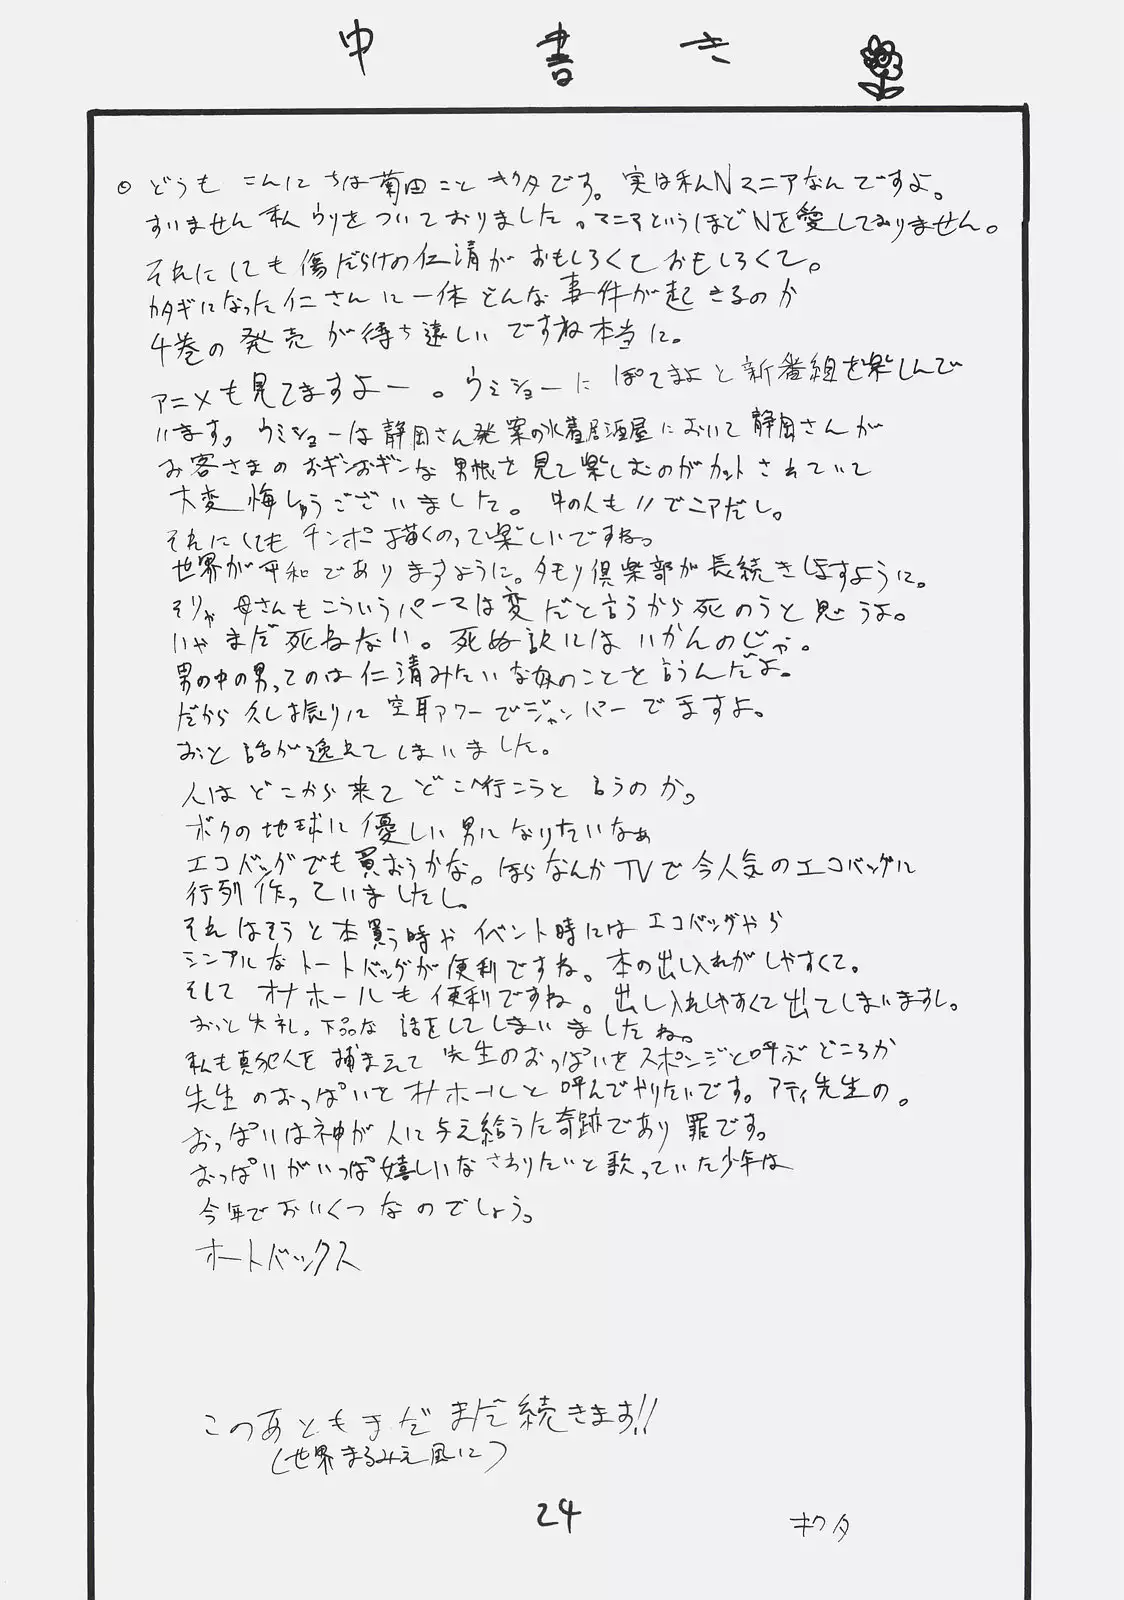 中書き
どうも こんにちは菊田こと キクタです。実は私Nマニアなんですよ。
すいません 私 ウソをついておりました。マニアというほどNを愛しておりません。
それにしても 傷だらけの仁清が おもしろくておもしろくて。
カタギになった仁さんに一体どんな事件が起きるのか
4巻の発売が待ち遠しいですね本当に。
アニメも見てますよー。ウミショーに ぽてまよと新番組を楽しんで
います。ウミショーは静岡さん発案の水着居酒屋において静岡さんが
お客さまのおギンおギンな男根を見て楽しむのがカットされていて
大変悔しゅうございました。
それにしてもチンポ描くのって楽しいですね。
世界が平和でありますように。タモリ倶楽部が長続きしますように。
そりゃ母さんもこういうパーマは変だと言うから死のうと思うよ。
いやまだ死ねない。死ぬ訳にはいかんのじゃ。
男の中の男ってのは仁清みたいな奴のことを言うんだよ。
だから久し振りに空耳アワーでジャンパーでますよ。
おっと話が逸れてしまいました。
人はどこから来てどこへ行こうと言うのか。
ボクの地球に優しい男になりたいなぁ
エコバッグでも買おうかな。ほらなんかTVで今人気のエコバッグに
行列作っていましたし。
それはそうと本買う時やイベント時にはエコバッグやら
シンプルなトートバッグが便利ですね。本の出し入れがしやすくて。
そしてオナホールも便利ですね。出し入れしやすくて出てしまいますし。
おっと失礼。下品な話をしてしまいましたね。
私も真犯人を捕まえて先生のおっぱいをスポンジと呼ぶどころか
先生のおっぱいをオナホールと呼んでやりたいです。アティ先生の。
おっぱいは神が人に与え給うた奇跡であり罪です。
おっぱいがいっぱい嬉しいなさわりたいと歌っていた少年は
今年でおいくつなのでしょう。
オートバックス
このあともまだまだ続きます!!
(世界まるみえ風に)
24
キクタ